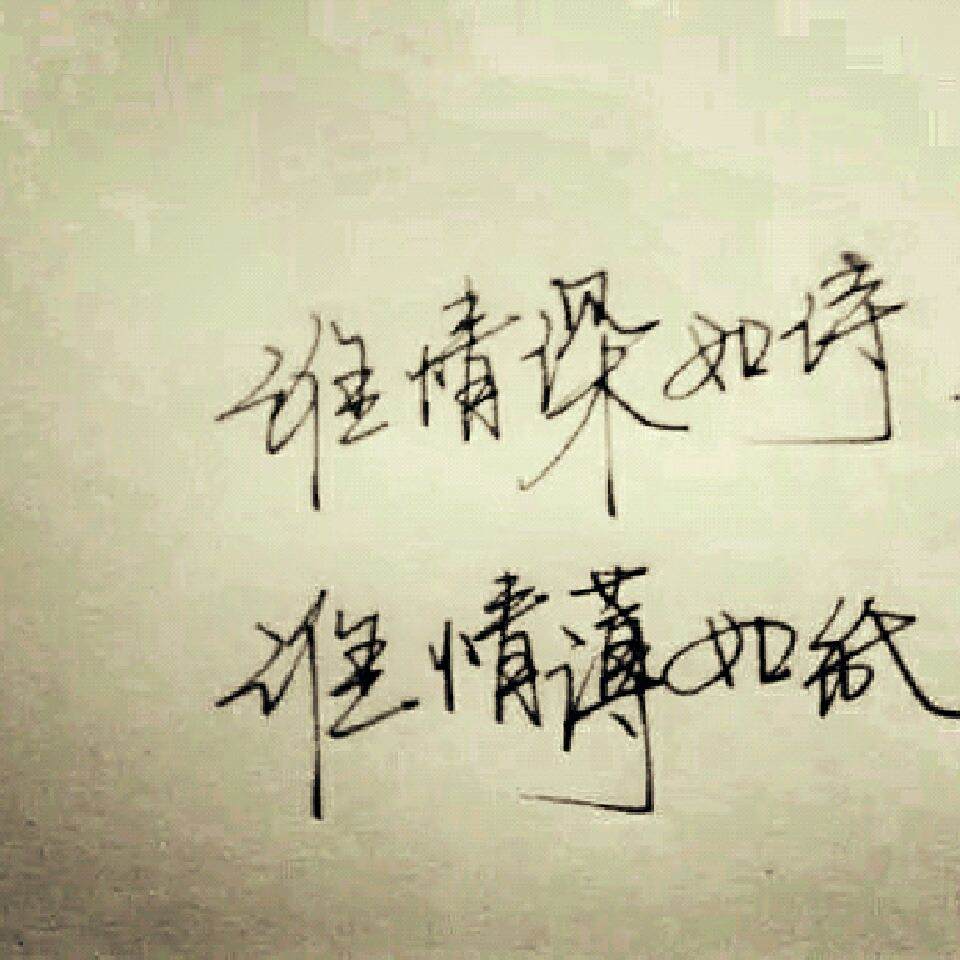 谁情深如诗
谁情薄如纸